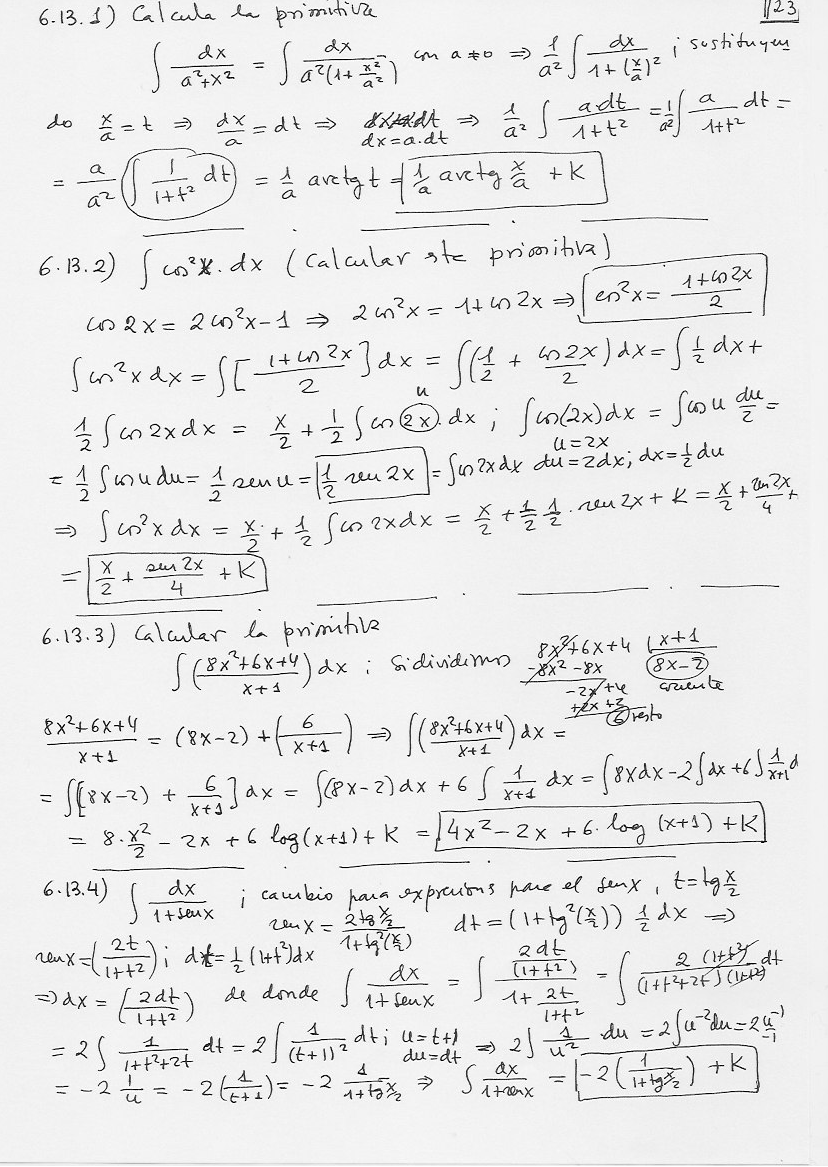 123
6.13.1) Calcula la primitiva
∫ dx/(a²+x²) = ∫ dx/(a²(1+x²/a²)) con a≠0 ⇒ 1/a² ∫ dx/(1+(x/a)²) ; sustituyen
do x/a = t ⇒ dx/a = dt ⇒ dx = a·dt ⇒ 1/a² ∫ a·dt/(1+t²) = 1/a² ∫ a/(1+t²) dt =
= a/a² (∫ 1/(1+t²) dt) = 1/a arctg t = 1/a arctg x/a + K
6.13.2) ∫ cos²x · dx (Calcular este primitiva)
cos 2x = 2cos²x-1 ⇒ 2cos²x = 1+cos 2x ⇒ cos²x = (1+cos2x)/2
∫cos²x dx = ∫[(1+cos 2x)/2] dx = ∫(1/2 + cos2x/2) dx = ∫ 1/2 dx +
1/2 ∫cos 2x dx = x/2 + 1/2 ∫cos (2x) · dx ; ∫cos(2x)dx = ∫cos u du/2 =
u
u=2x
= 1/2 ∫cos u du = 1/2 sen u = 1/2 sen 2x = ∫cos 2x dx du=2dx; dx=1/2 du
⇒ ∫cos²x dx = x/2 + 1/2 ∫cos 2x dx = x/2 + 1/2 1/2 · sen 2x + K = x/2 + sen 2x/4 +
= x/2 + sen 2x/4 + K
6.13.3) Calcular la primitiva
∫((8x²+6x+4)/(x+1)) dx ; Si dividimos 8x²+6x+4 | x+1
-8x² -8x 8x-2
-2x+4 cociente
+2x+2
6 resto
(8x²+6x+4)/(x+1) = (8x-2) + (6/(x+1)) ⇒ ∫((8x²+6x+4)/(x+1)) dx =
= ∫[(8x-2) + 6/(x+1)] dx = ∫(8x-2) dx + 6 ∫ 1/(x+1) dx = ∫8xdx - 2∫dx + 6∫ 1/(x+1) d
= 8·x²/2 - 2x + 6 log(x+1) + K = 4x² - 2x + 6· log (x+1) + K
6.13.4) ∫ dx/(1+senx) ; cambio para expresions para el senx, t = tg x/2
sen x = 2tg x/2/(1+tg²(x/2)) dt = (1+tg²(x/2)) 1/2 dx ⇒
senx = (2t/(1+t²)) ; dt = 1/2 (1+t²)dx
⇒ dx = (2dt/(1+t²)) de donde ∫ dx/(1+senx) = ∫ (2dt/(1+t²))/(1+2t/(1+t²)) = ∫ 2 (1+t²)/((1+t²+2t)(1+t²)) dt
= 2∫ 1/(1+t²+2t) dt = 2∫ 1/(t+1)² dt ; u=t+1 du=dt ⇒ 2∫ 1/u² du = 2∫u⁻²du = 2u⁻¹/-1
= -2 1/u = -2(1/(t+1)) = -2 1/(1+tg x/2) ⇒ ∫ dx/(1+senx) = -2(1/(1+tg x/2)) + K